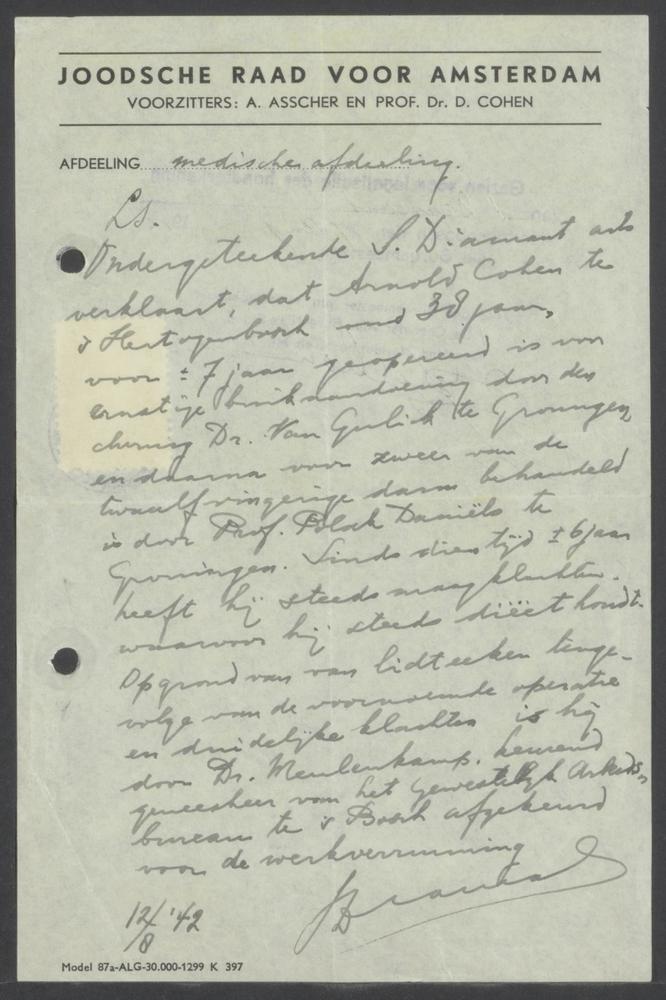 JOODSCHE RAAD VOOR AMSTERDAM
VOORZITTERS: A. ASSCHER EN PROF. Dr. D. COHEN
AFDEELING medische afdeeling.
LS.
Ondergeteekende S. Diamant arts
verklaart, dat Arnold Cohen te
's Hertogenbosch oud 38 jaar,
voor ± 7 jaar geopereerd is voor
ernstige buikaandoening door den
chirurg Dr. Van Gulik te Groningen
en daarna voor zweer van de
twaalfvingerige darm behandeld
is door Prof. Polak Daniëls te
Groningen. Sinds dien tijd ± 6 jaar
heeft hij steeds maagklachten.
waarvoor hij steeds diëet houdt.
Op grond van van lidteeken tenge-
volge van de voornoemde operatie
en duidelijke klachten is hij
door Dr. Meulenkamp, keurend
geneesheer van het Gewestelijk Arbeids-
bureau te 's Bosch afgekeurd
voor de werkverruiming
SDiamant
12/8 '42
Model 87a-ALG-30.000-1299 K 397